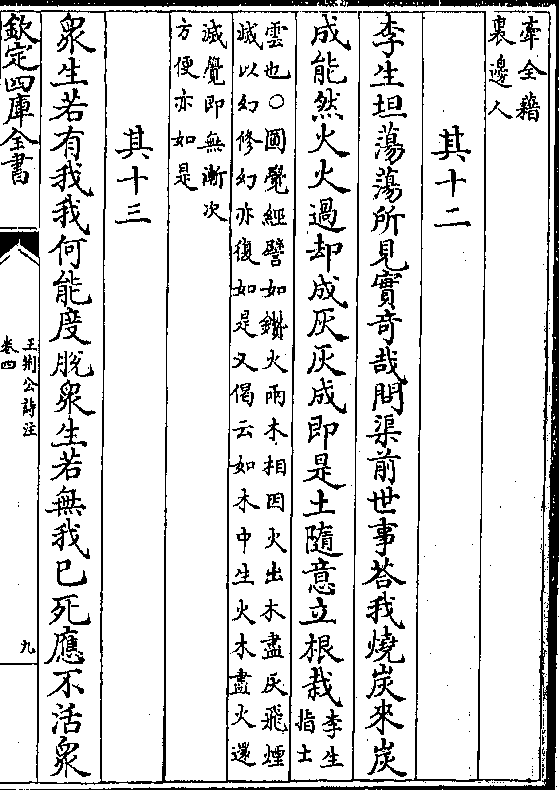 牽全藉
裏邊人
其十二
李生坦蕩蕩所見實奇哉問渠前世事荅我燒炭來炭
成能然火火過却成灰灰成即是土隨意立根栽
李生
指土
雲也○圓覺經譬如鑚火兩木相因火出木盡灰飛煙
滅以幻修幻亦復如是又偈云如木中生火木盡火還
滅覺即無漸次
方便亦如是
其十三
衆生若有我我何能度脫衆生若無我已死應不活衆
欽定四庫全書
王荆公詩注
卷四
九